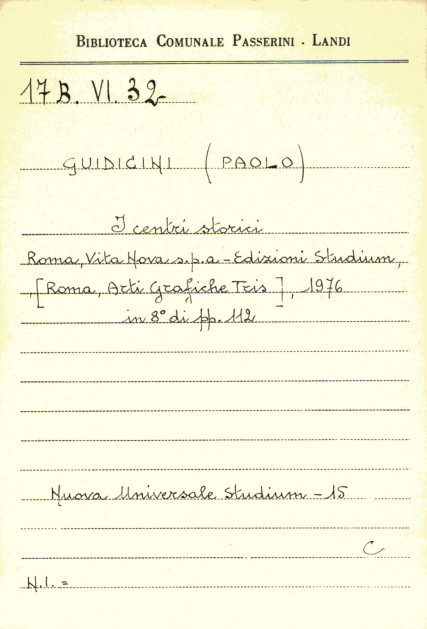 BIBLIOTECA COMUNALE PASSERINI - LANDI
17 B. VI. 32
GUIDICINI (PAOLO)
I centri storici
Roma, Vita Nova s.p.a - Edizioni Studium,
,[Roma, Arti Grafiche Tris ], 1976
in 8° di pp. 112
Nuova Universale Studium - 15
C
N.I. =